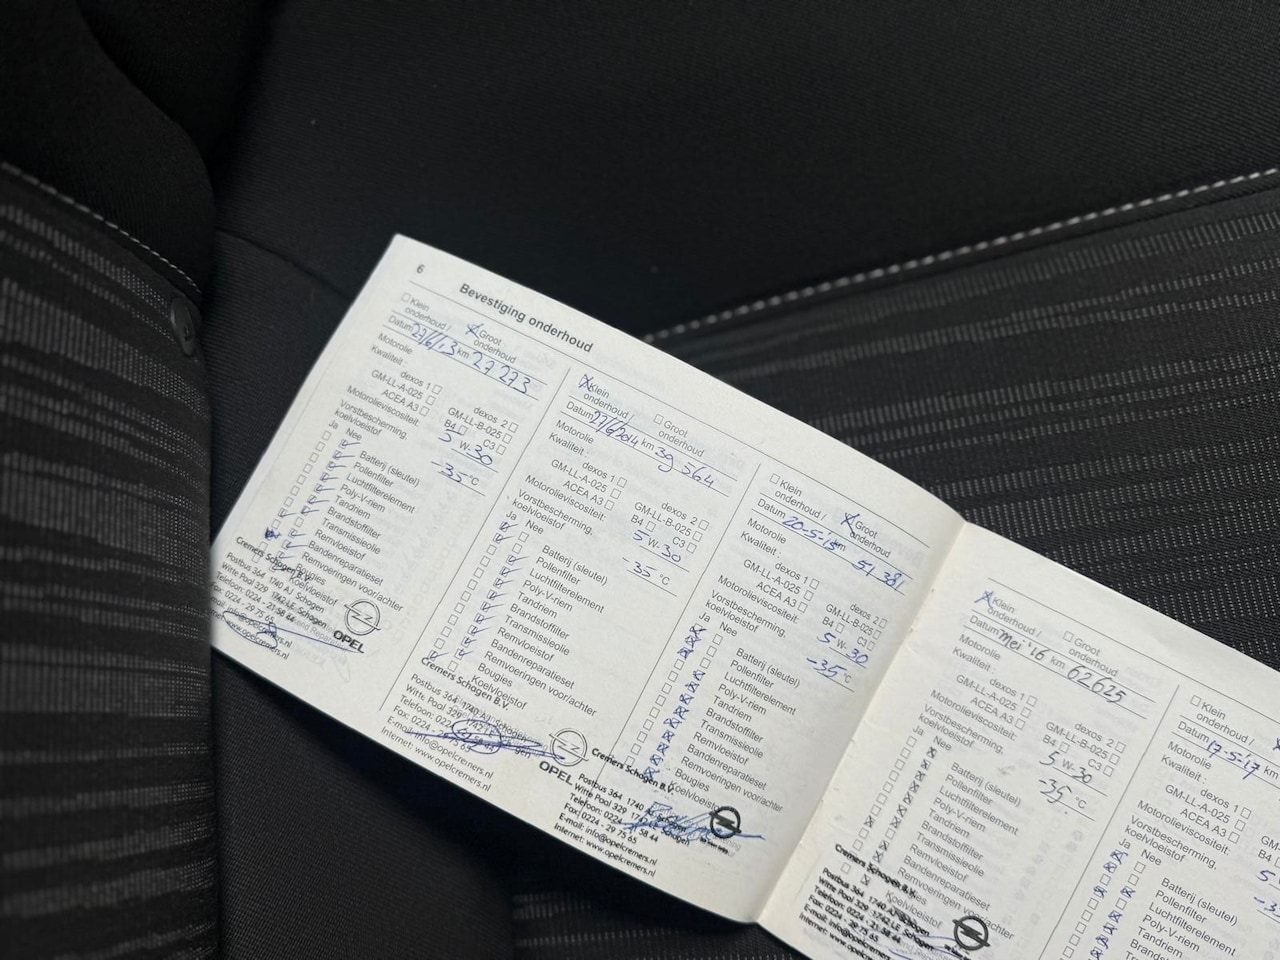 6
Bevestiging onderhoud
Klein onderhoud / Groot onderhoud
Datum 27/6/13 km 27 273
Motorolie
Kwaliteit :
dexos 1 dexos 2
GM-LL-A-025 GM-LL-B-025
ACEA A3 B4 C3
Motorolieviscositeit: 5 W-30
Vorstbescherming,
koelvloeistof -35 °C
Ja Nee
Batterij (sleutel)
Pollenfilter
Luchtfilterelement
Poly-V-riem
Tandriem
Brandstoffilter
Transmissieolie
Remvloeistof
Bandenreparatieset
Remvoeringen voor/achter
Bougies
Koelvloeistof
Cremers Schagen B.V.
Postbus 364, 1740 AJ Schagen
Witte Paal 329, 1742 LE Schagen
Telefoon: 0224 - 21 58 44
Fax: 0224 - 29 75 65
www.opelcremers.nl
OPEL
Klein onderhoud / Groot onderhoud
Datum 27/6/2014 km 39 564
Motorolie
Kwaliteit :
dexos 1 dexos 2
GM-LL-A-025 GM-LL-B-025
ACEA A3 B4 C3
Motorolieviscositeit: 5 W-30
Vorstbescherming,
koelvloeistof -35 °C
Ja Nee
Batterij (sleutel)
Pollenfilter
Luchtfilterelement
Poly-V-riem
Tandriem
Brandstoffilter
Transmissieolie
Remvloeistof
Bandenreparatieset
Remvoeringen voor/achter
Bougies
Koelvloeistof
Cremers Schagen B.V.
Postbus 364, 1740 AJ Schagen
Witte Paal 329
Telefoon: 0224
Fax: 0224 - 29 75 65
E-mail: info@opelcremers.nl
Internet: www.opelcremers.nl
OPEL
Klein onderhoud / Groot onderhoud
Datum 20-5-15 km 51 381
Motorolie
Kwaliteit :
dexos 1 dexos 2
GM-LL-A-025 GM-LL-B-025
ACEA A3 B4 C3
Motorolieviscositeit: 5 W-30
Vorstbescherming,
koelvloeistof -35 °C
Ja Nee
Batterij (sleutel)
Pollenfilter
Luchtfilterelement
Poly-V-riem
Tandriem
Brandstoffilter
Transmissieolie
Remvloeistof
Bandenreparatieset
Remvoeringen voor/achter
Bougies
Koelvloeistof
Cremers Schagen B.V.
Postbus 364, 1740 AJ Schagen
Witte Paal 329, 1742 LE Schagen
Telefoon: 0224 - 21 58 44
Fax: 0224 - 29 75 65
E-mail: info@opelcremers.nl
Internet: www.opelcremers.nl
Klein onderhoud / Groot onderhoud
Datum Mei '16 km 62625
Motorolie
Kwaliteit :
dexos 1 dexos 2
GM-LL-A-025 GM-LL-B-025
ACEA A3 B4 C3
Motorolieviscositeit: 5 W-30
Vorstbescherming,
koelvloeistof -35 °C
Ja Nee
Batterij (sleutel)
Pollenfilter
Luchtfilterelement
Poly-V-riem
Tandriem
Brandstoffilter
Transmissieolie
Remvloeistof
Bandenreparatieset
Remvoeringen voor/achter
Bougies
Koelvloeistof
Cremers Schagen B.V.
Postbus 364, 1740 AJ Schagen
Witte Paal 329, 1742 LE Schagen
Telefoon: 0224 - 21 58 44
Fax: 0224 - 29 75 65
E-mail: info@opelcremers.nl
Internet: www.opelcremers.nl
Klein
onderhoud /
Datum 17-5-17 km
Motorolie
Kwaliteit :
dexos 1
GM-LL-A-025
ACEA A3 B4
Motorolieviscositeit: 5
Vorstbescherming,
koelvloeistof
Ja Nee
Batterij (sleutel)
Pollenfilter
Luchtfilterelement
Poly-V-riem
Tandriem